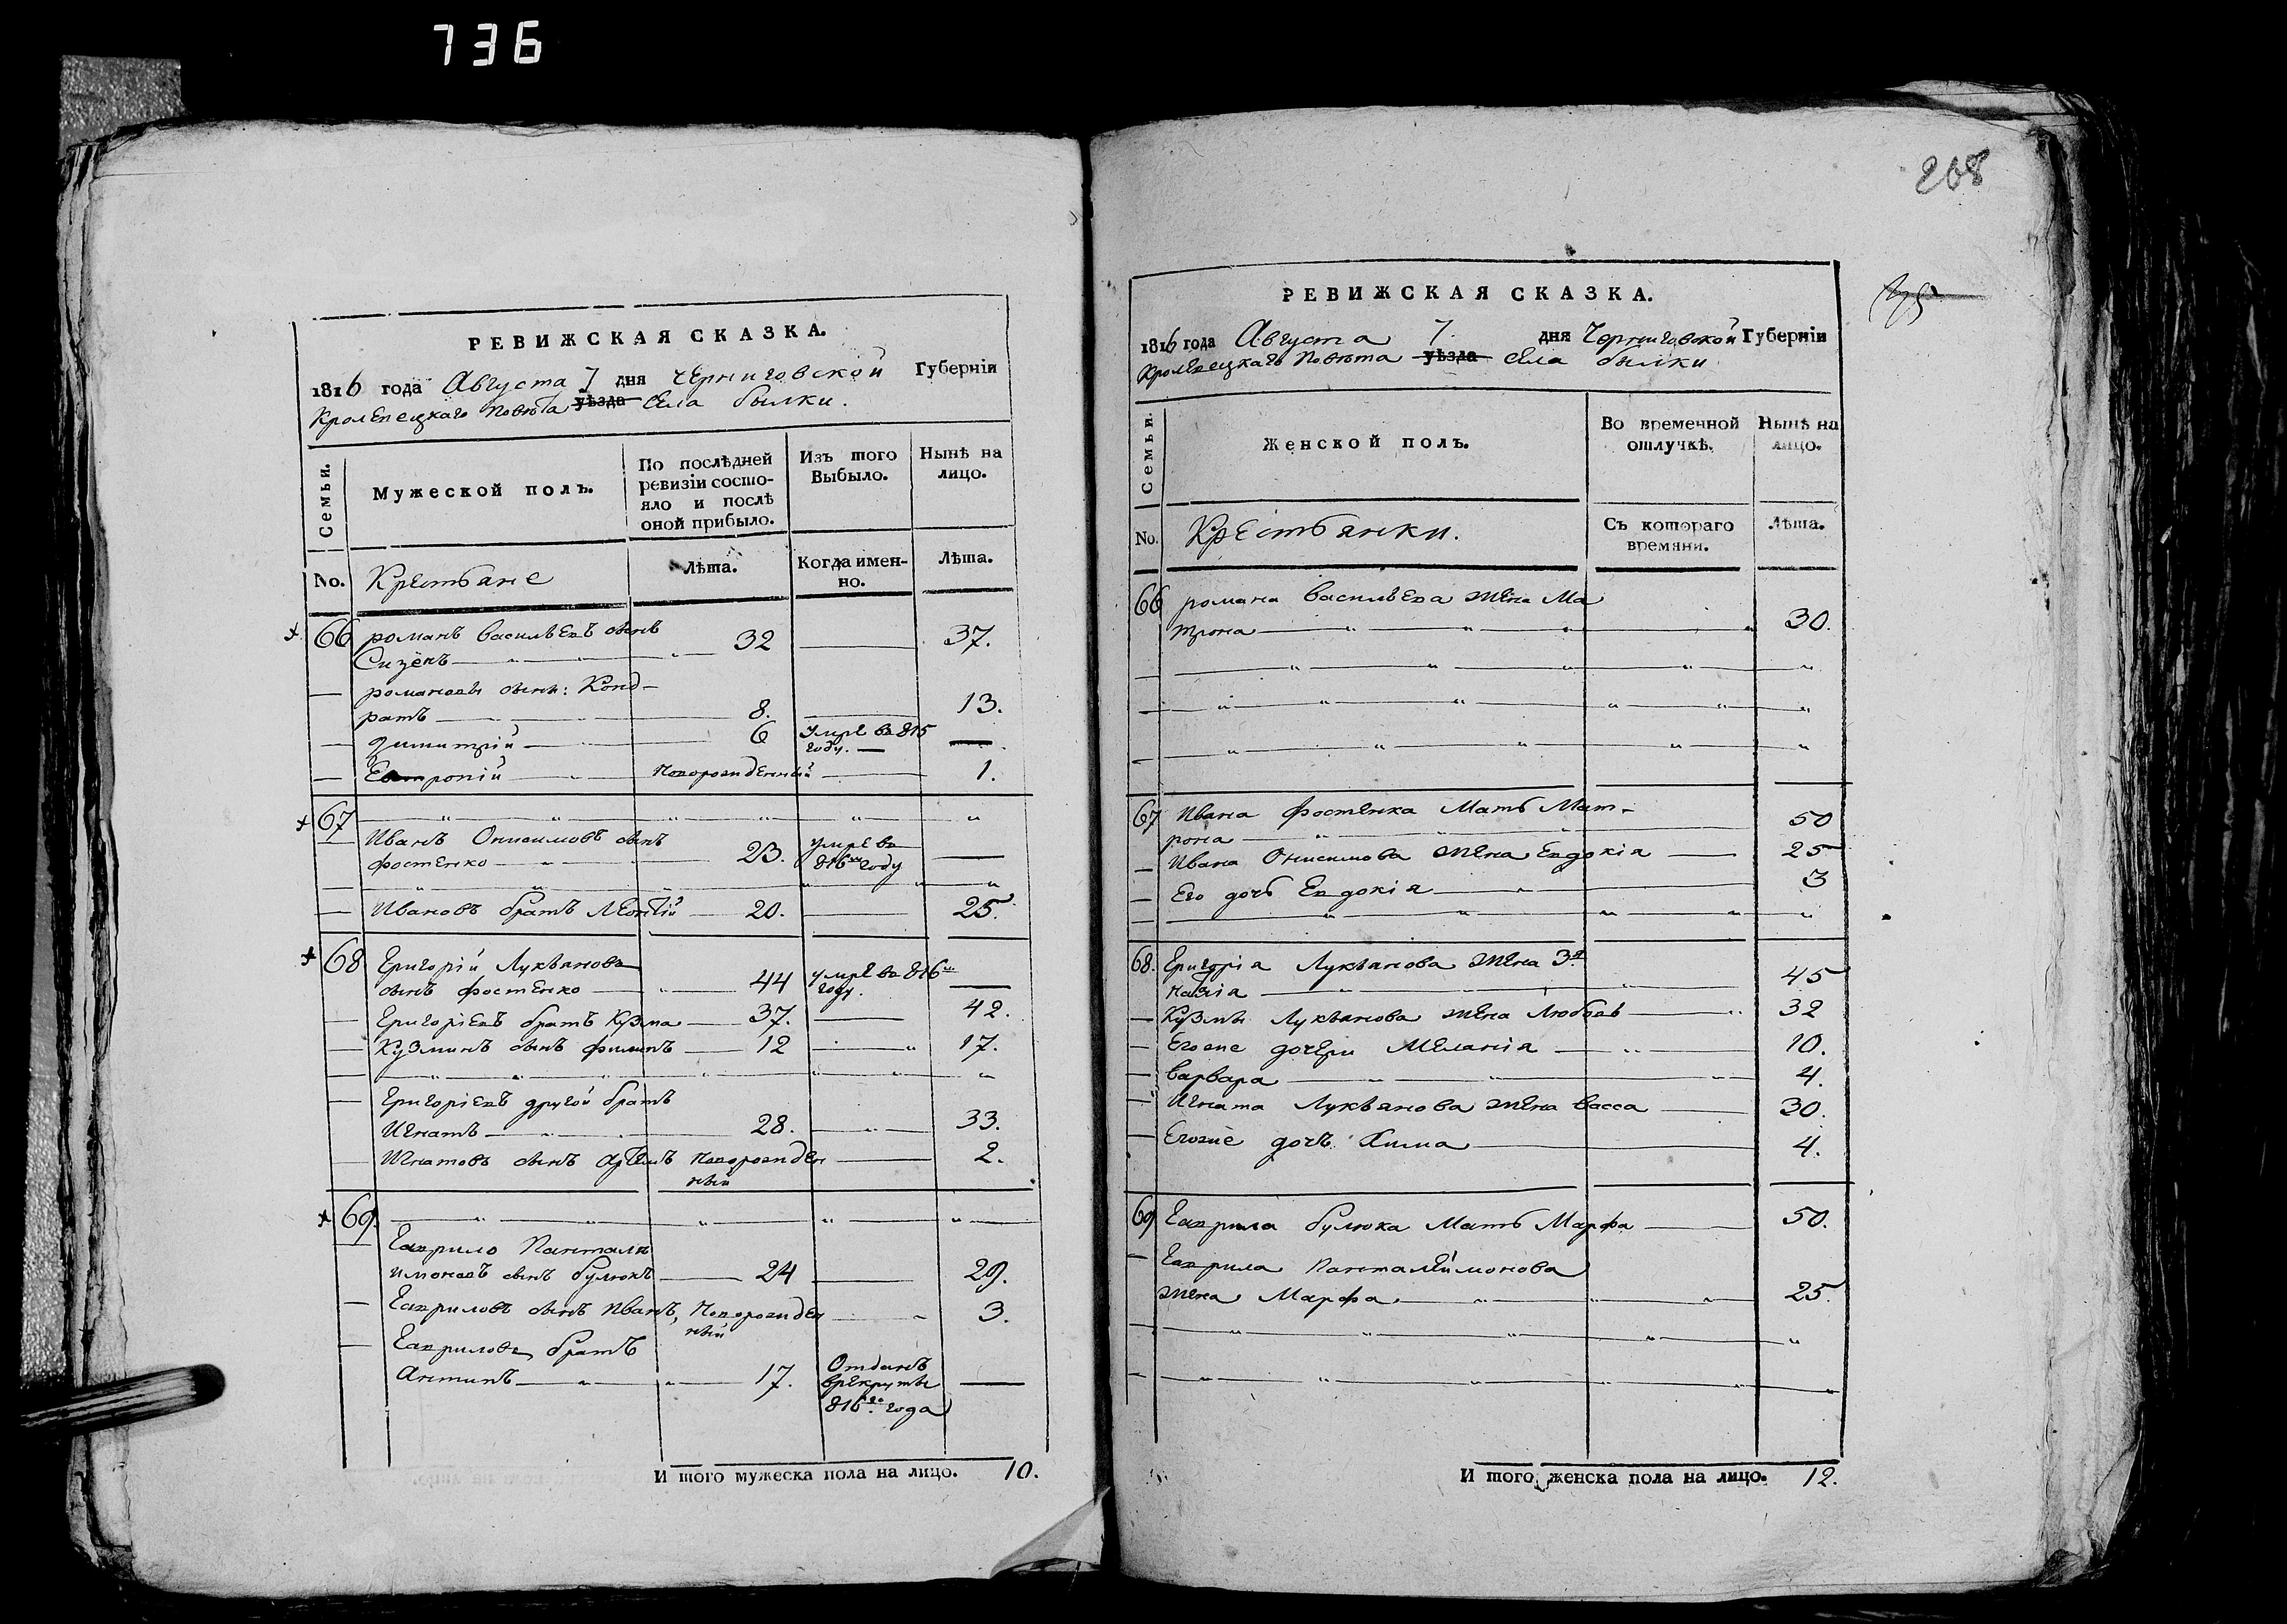 736
РЕВИЖСКАЯ СКАЗКА.
1816 года Августа 7 дня Черниговской Губерніи
Кролевецкаго Повѣта уѣзда Села былки.
Семьи.
Мужеской полъ.
По послѣдней
ревизіи состо-
яло и послѣ
оной прибыло.
Изъ того
Выбыло.
Нынѣ на
лицо.
No.
Крестьане
Лѣта.
Когда имен-
но.
Лѣта.
66 романъ васильевъ сынъ
Сизенъ 32 37.
романовы сыны: Конд-
ратъ 8. 13.
димитрій 6 Умре въ 815
году.
Евтропій новорожденный 1.
67
Иванъ Онисимовъ сынъ
фостенко 23. умре въ
816м году
Ивановъ братъ Леонтій 20. 25.
68 Григорій Лукьяновъ
сынъ фостенко 44 умре въ 816м
году.
Григоріевъ братъ Кузма 37. 42.
Кузминъ сынъ филипъ 12 17.
Григоріевъ другой братъ
Игнатъ 28. 33.
Игнатовъ сынъ артемъ новорожден
ный 2.
69.
Гаврило Панталѣ
имоновъ сынъ булюкъ 24 29.
Гавриловъ сынъ иванъ, новорожден
ный 3.
Гавриловъ братъ
Антипъ 17. Отданъ
врекруты
816го года
И того мужеска пола на лицо. 10.
268
РЕВИЖСКАЯ СКАЗКА.
1816 года Августа 7. дня Черниговской Губерніи
Кролевецкаго Повѣта уѣзда села былки
Семьи.
Женской полъ.
Во временной
отлучкѣ.
Нынѣ на
лицо.
No.
Крестьянки.
Съ котораго
времяни.
Лѣта.
66 романа васильева жена Ма
трона 30.
67 Ивана фостенка Мать Мат-
рона 50
Ивана Онисимова жена Евдокіа 25
Его дочь Евдокіа 3
68. Григоріа Лукьанова жена 3я
наѣіа 45
Кузмы Лукьанова жена Любовь 32
Егоже дочери Меланіа 10.
варвара 4.
Игната Лукьянова жена васса 30.
Егоже дочь Хима 4.
69 Гаврила булюка Мать Марфа 50.
Гаврила Панталеимонова
жена Марфа 25.
И того женска пола на лицо. 12.